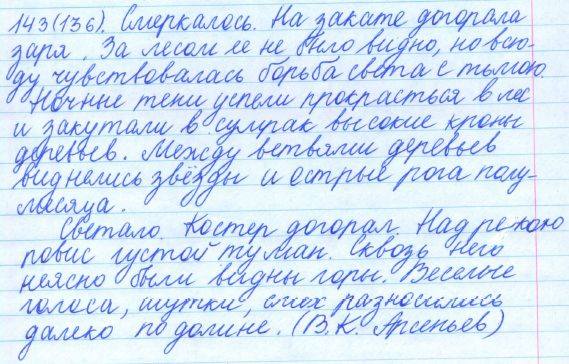 143(136). Смеркалось. На закате догорала
заря. За лесом ее не было видно, но всю-
ду чувствовалась борьба света с тьмою.
Ночные тени успели прокрасться в лес
и закутали в сумрак высокие кроны
деревьев. Между ветвями деревьев
виднелись звёзды и острые рога полу-
месяца.
Светало. Костер догорал. Над рекою
повис густой туман. Сквозь него
неясно были видны горы. Веселые
голоса, шутки, смех разносились
далеко по долине. (В.К. Арсеньев)